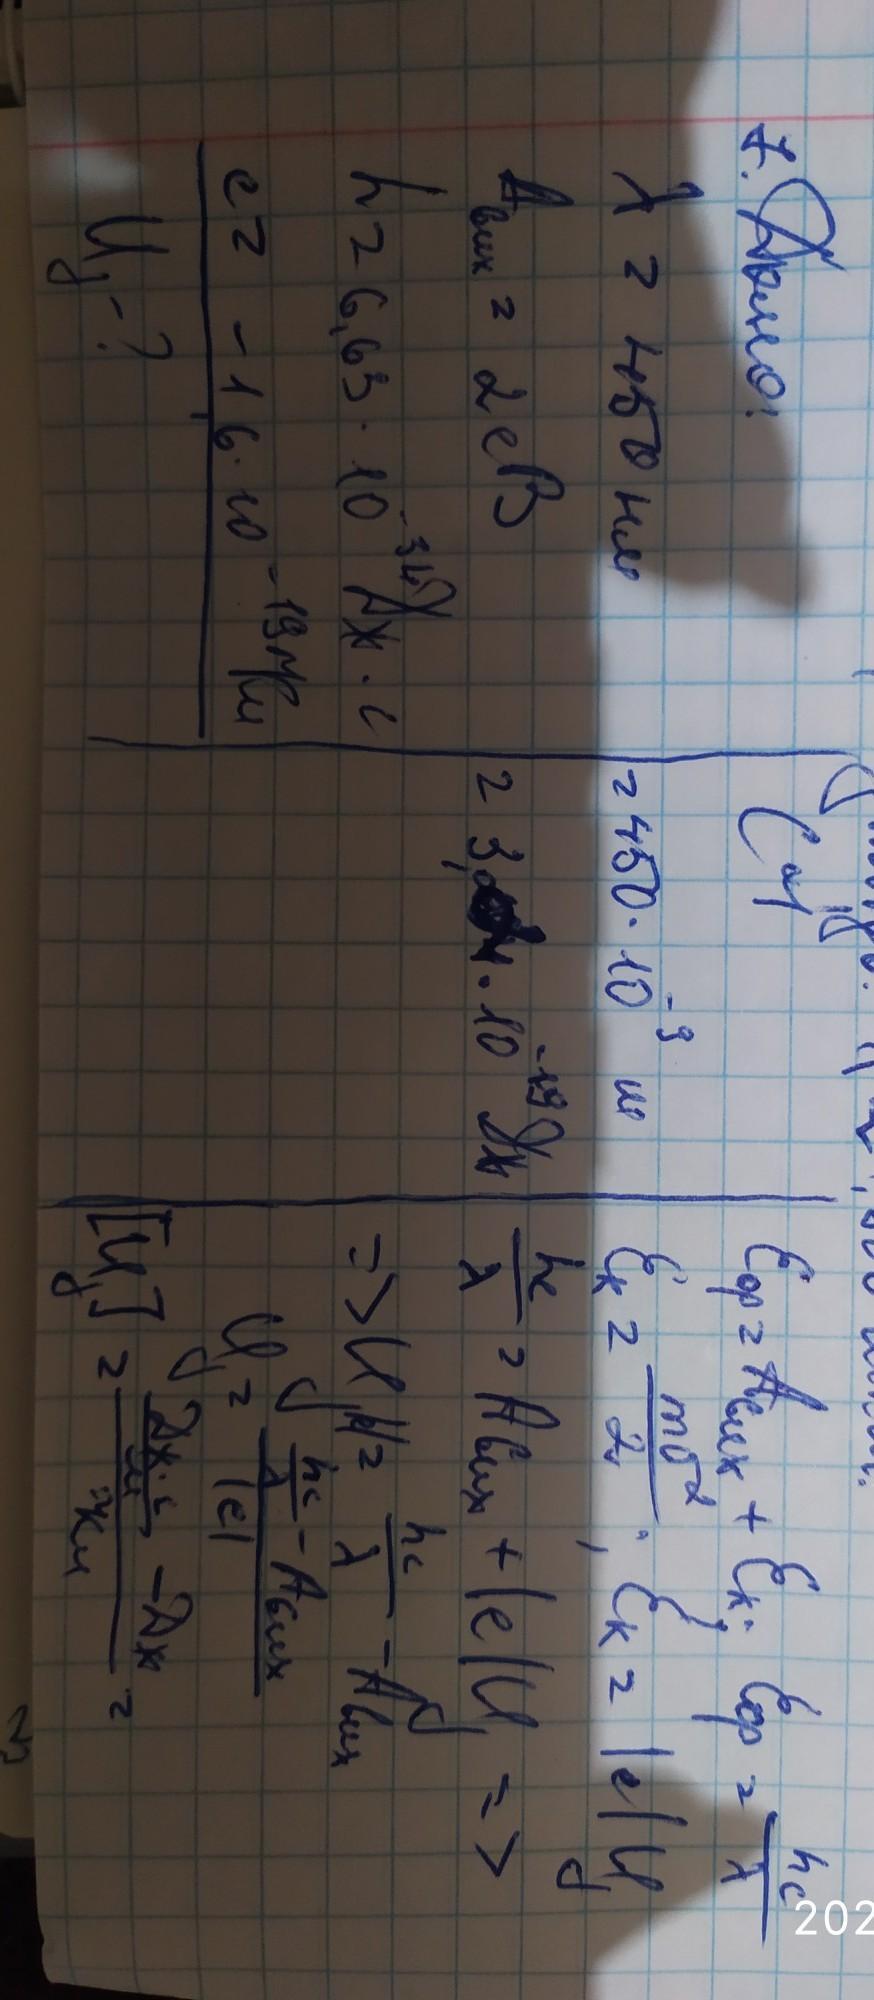 7. Дано:
λ = 450 нм
Aвих = 2 еВ
h = 6,63 · 10⁻³⁴ Дж · с
e = -1,6 · 10⁻¹⁹ Кл
Uз - ?
CI
= 450 · 10⁻⁹ м
= 3, · 10⁻¹⁹ Дж
Eф = Aвих + Eк. Eф = hc/λ
Eк = mv²/2; Eк = |e|Uз
hc/λ = Aвих + |e|Uз =>
=> Uз|e| = hc/λ - Aвих
Uз = (hc/λ - Aвих)/|e|
[Uз] = (Дж·с/м - Дж)/Кл =
202